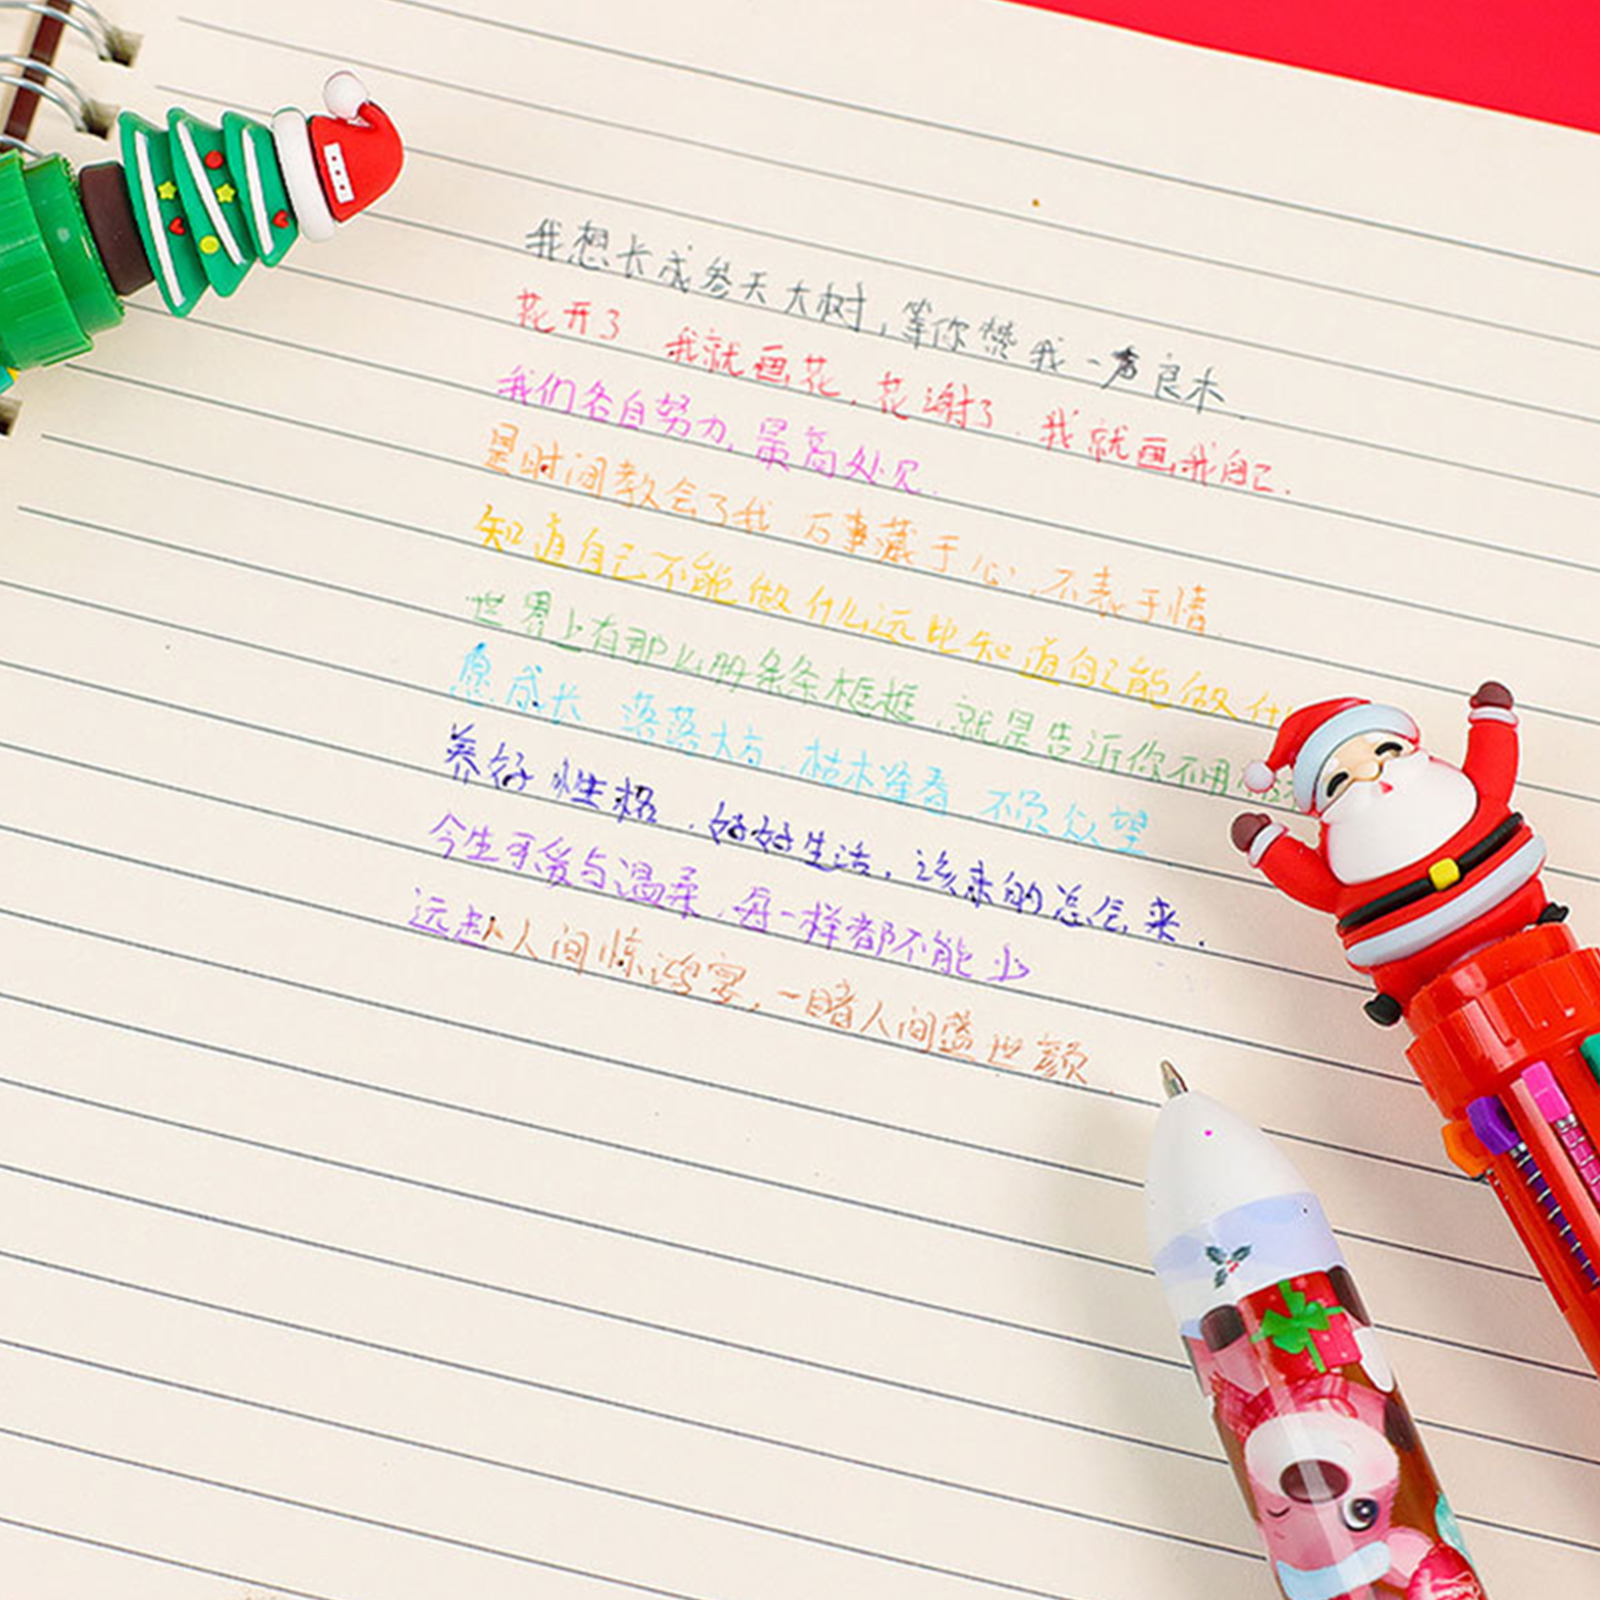 我想长成参天大树，等你赞我一声良木.
花开了 我就画花，花谢了.我就画我自己.
我们各自努力，最高处见.
是时间教会了我 万事藏于心，不表于情.
知道自己不能做什么远比知道自己能做什
世界上有那么册条条框框，就是告诉你不用
愿成长 落落大方，枯木逢春 不负众望
养好性格，好好生活，该来的总会来.
今生可爱与温柔，每一样都不能少
远赴人间惊鸿宴，一睹人间盛世颜